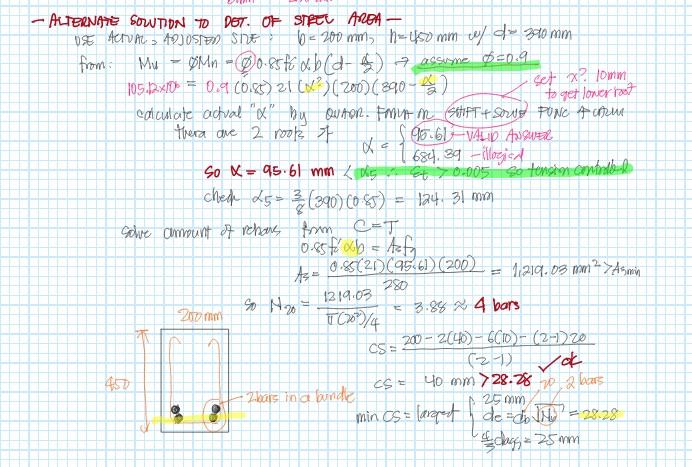 - ALTERNATE SOLUTION TO DET. OF STEEL AREA -
USE ACTUAL, ADJUSTED SIZE: b=200mm, h=450 mm w/ d= 390 mm
from: Mu = ØMn = Ø 0.85fc' αb(d - α/2) → assume Ø=0.9
105.12x10⁶ = 0.9(0.85)21(α)(200)(390 - α/2)
set x? 10mm
to get lower root
calculate actual "α" by QUADR. FMULA or SHIFT+SOLVE FUNC
there are 2 roots of α = { 95.61 - VALID ANSWER
684.39 - illogical
so α = 95.61 mm < α5 ∴ Et > 0.005 so tension controlled
check α5 = 3/8 (390)(0.85) = 124.31 mm
solve amount of rebars from C=T
0.85fc'αb = Asfy
As = 0.85(21)(95.61)(200) / 280 = 1,219.03 mm² > Asmin
so N20 = 1219.03 / (π(20²)/4) = 3.88 ≈ 4 bars
200mm
450
2 bars in a bundle
CS = (200-2(40)-6(10)-(2-1)20) / (2-1)
CS = 40 mm > 28.28 ✓ ok
20, 2 bars
min CS = largest { 25 mm
de = db √Nb = 28.28
4/3 dagg = 25 mm